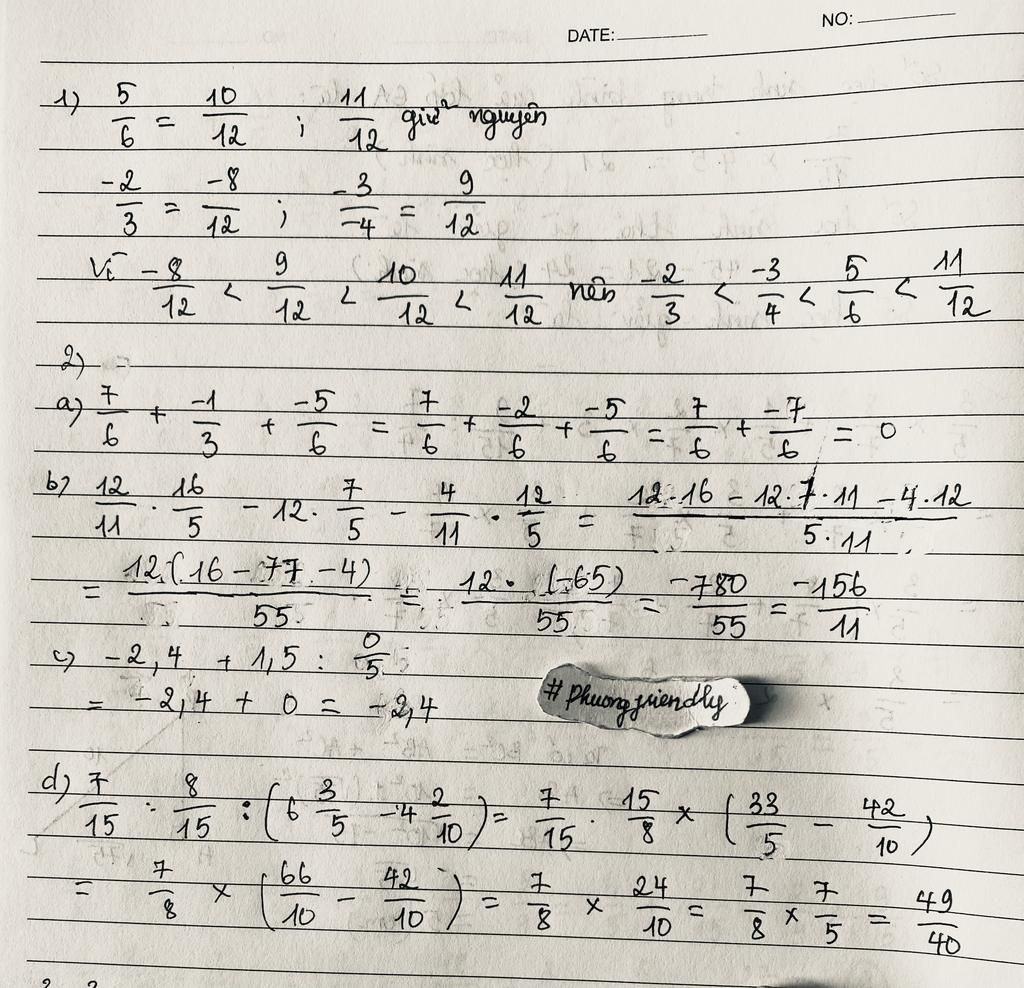 DATE: NO:
1) 5/6 = 10/12 ; 11/12 giữ nguyên
-2/3 = -8/12 ; -3/-4 = 9/12
Vì -8/12 < 9/12 < 10/12 < 11/12 nên -2/3 < -3/4 < 5/6 < 11/12
2)
a) 7/6 + -1/3 + -5/6 = 7/6 + -2/6 + -5/6 = 7/6 + -7/6 = 0
b) 12/11 . 16/5 - 12 . 7/5 - 4/11 . 12/5 = (12.16 - 12.7.11 - 4.12)/(5.11)
= 12.(16 - 77 - 4)/55 = 12.(-65)/55 = -780/55 = -156/11
c) -2,4 + 1,5 : 0/5
= -2,4 + 0 = -2,4
#phuongfriendly
d) 7/15 : 8/15 : (6 3/5 - 4 2/10) = 7/15 . 15/8 × (33/5 - 42/10)
= 7/8 × (66/10 - 42/10) = 7/8 × 24/10 = 7/8 × 7/5 = 49/40